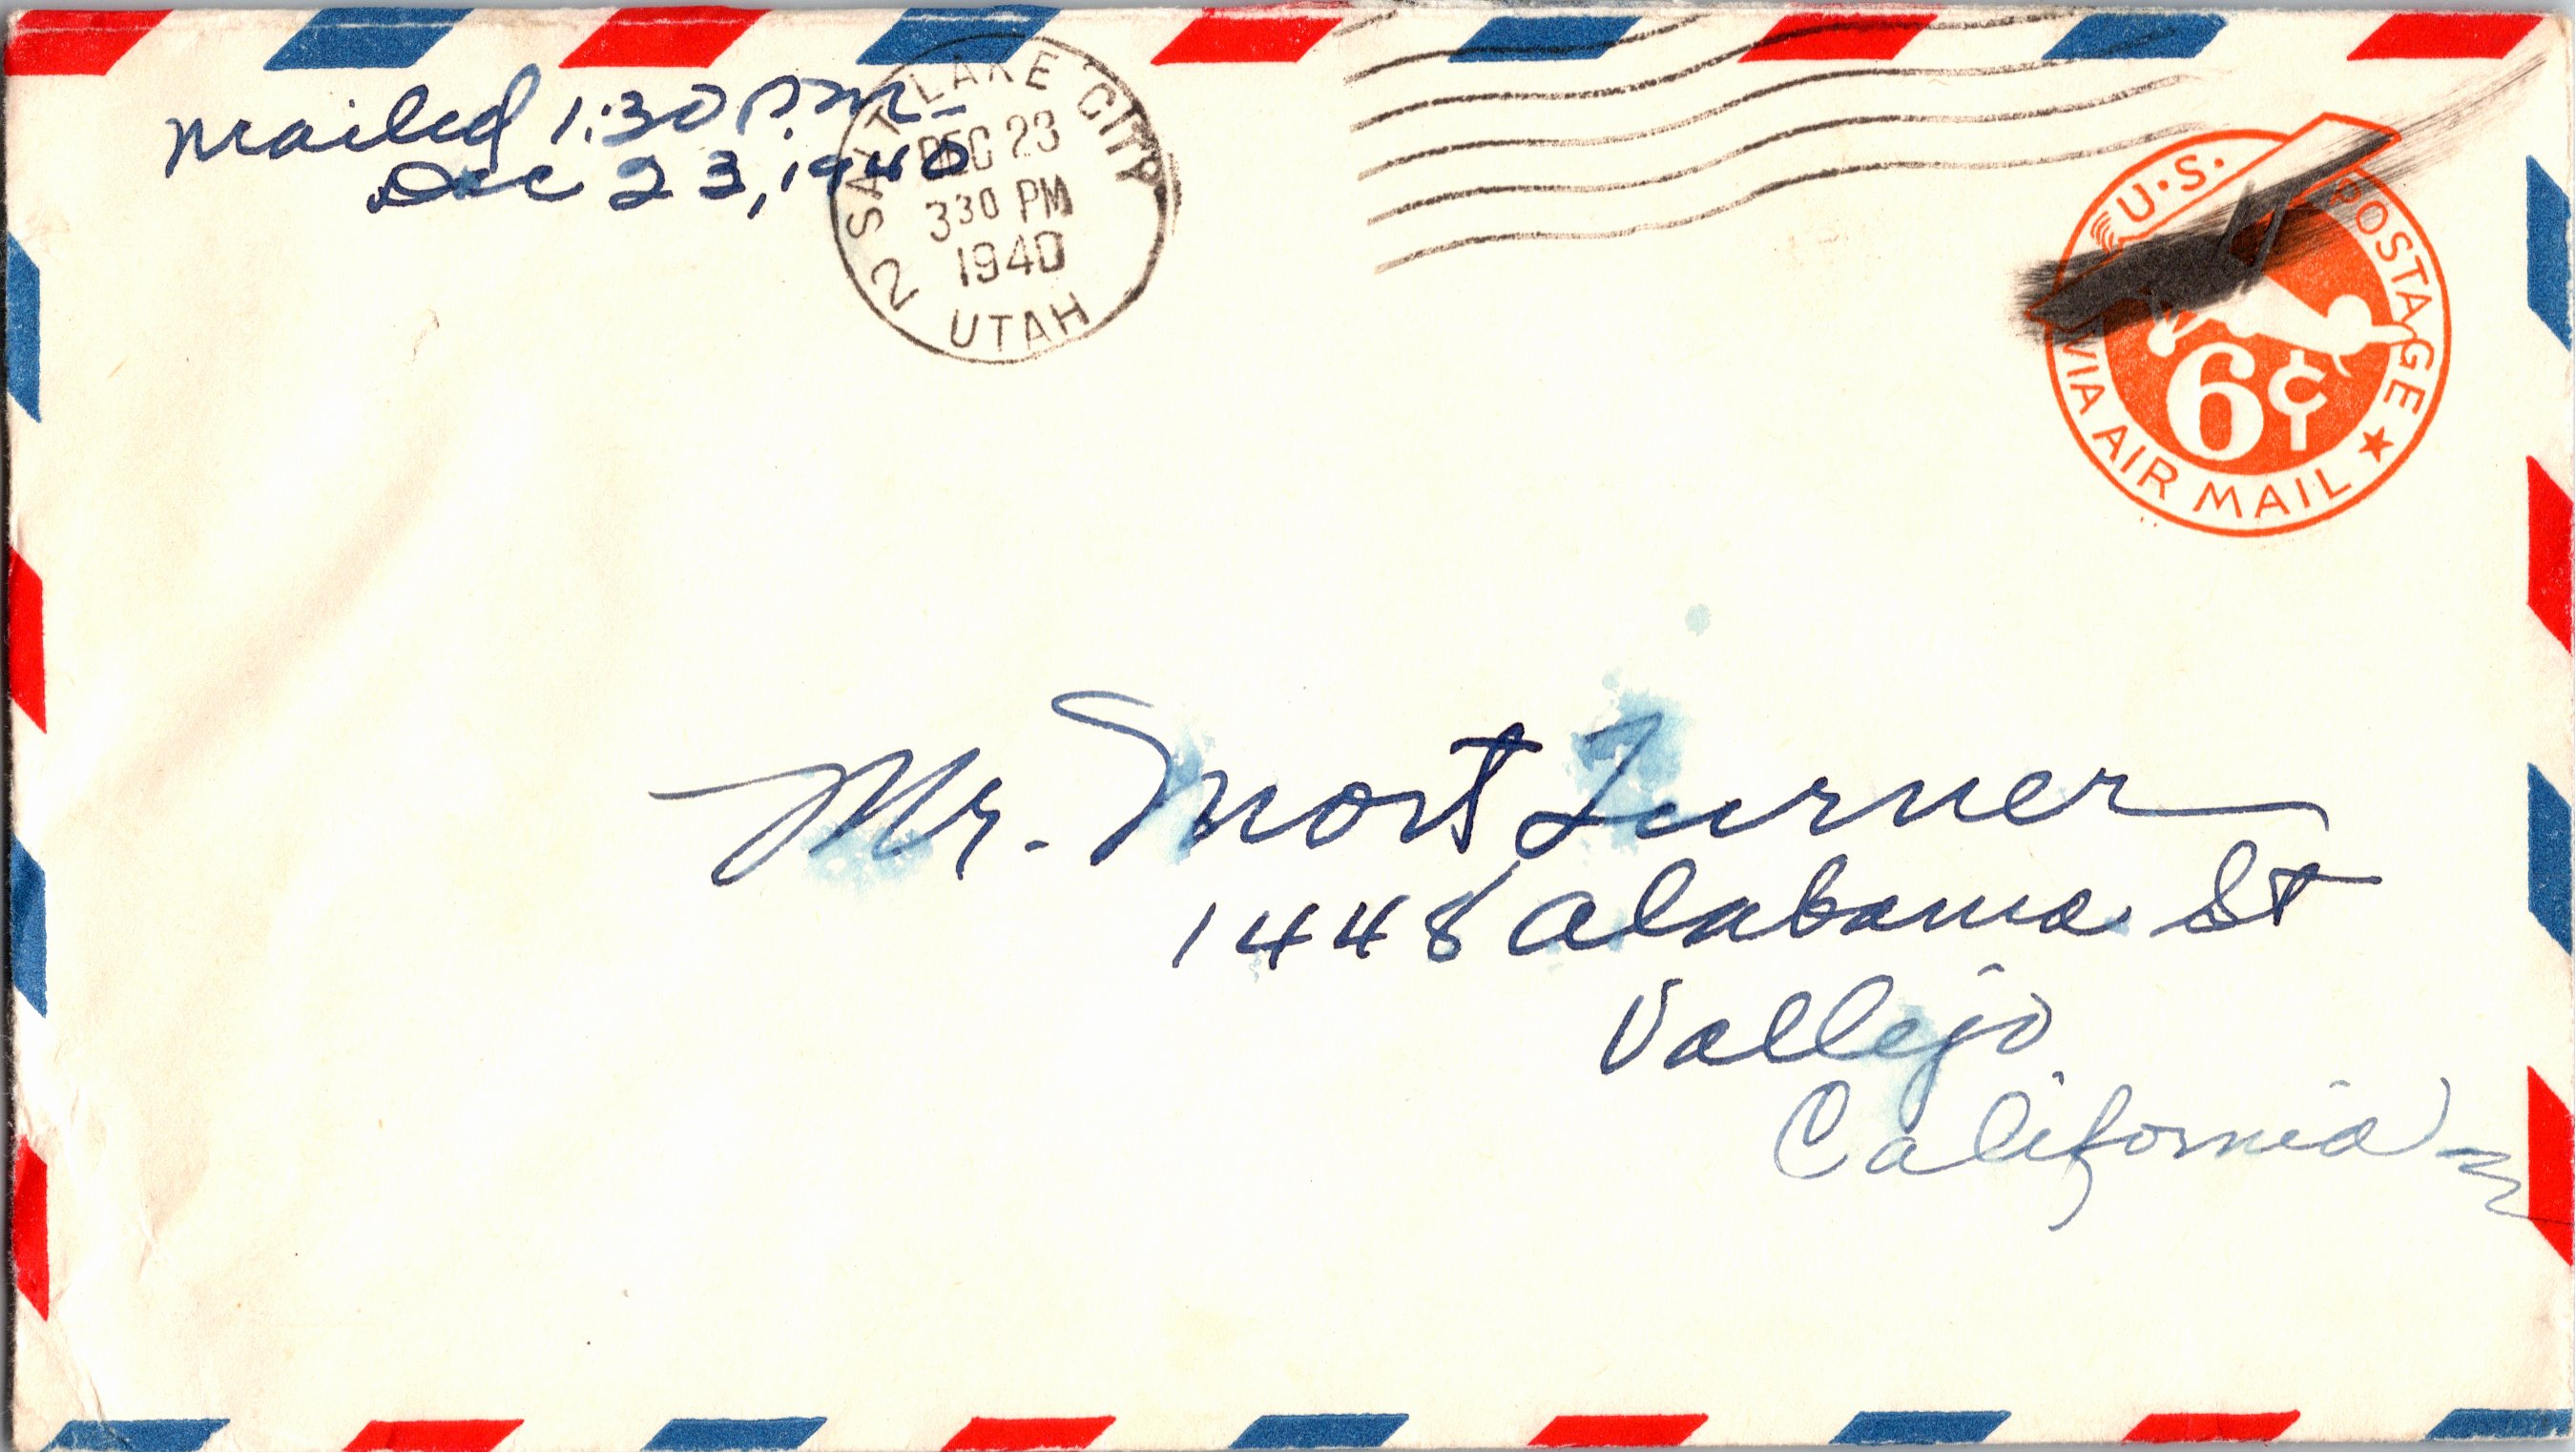 Mailed 1:30 P.M.
Dec 23, 1940
SALT LAKE CITY
DEC 23
330 PM
1940
2
UTAH
U.S. POSTAGE
6¢
VIA AIR MAIL
Mr. Mort Turner
1448 Alabama St
Vallejo
California